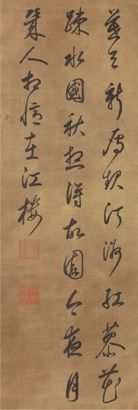 暮天新雁起汀洲紅蓼花
疎水國秋想得故園今夜月
幾人相憶在江樓